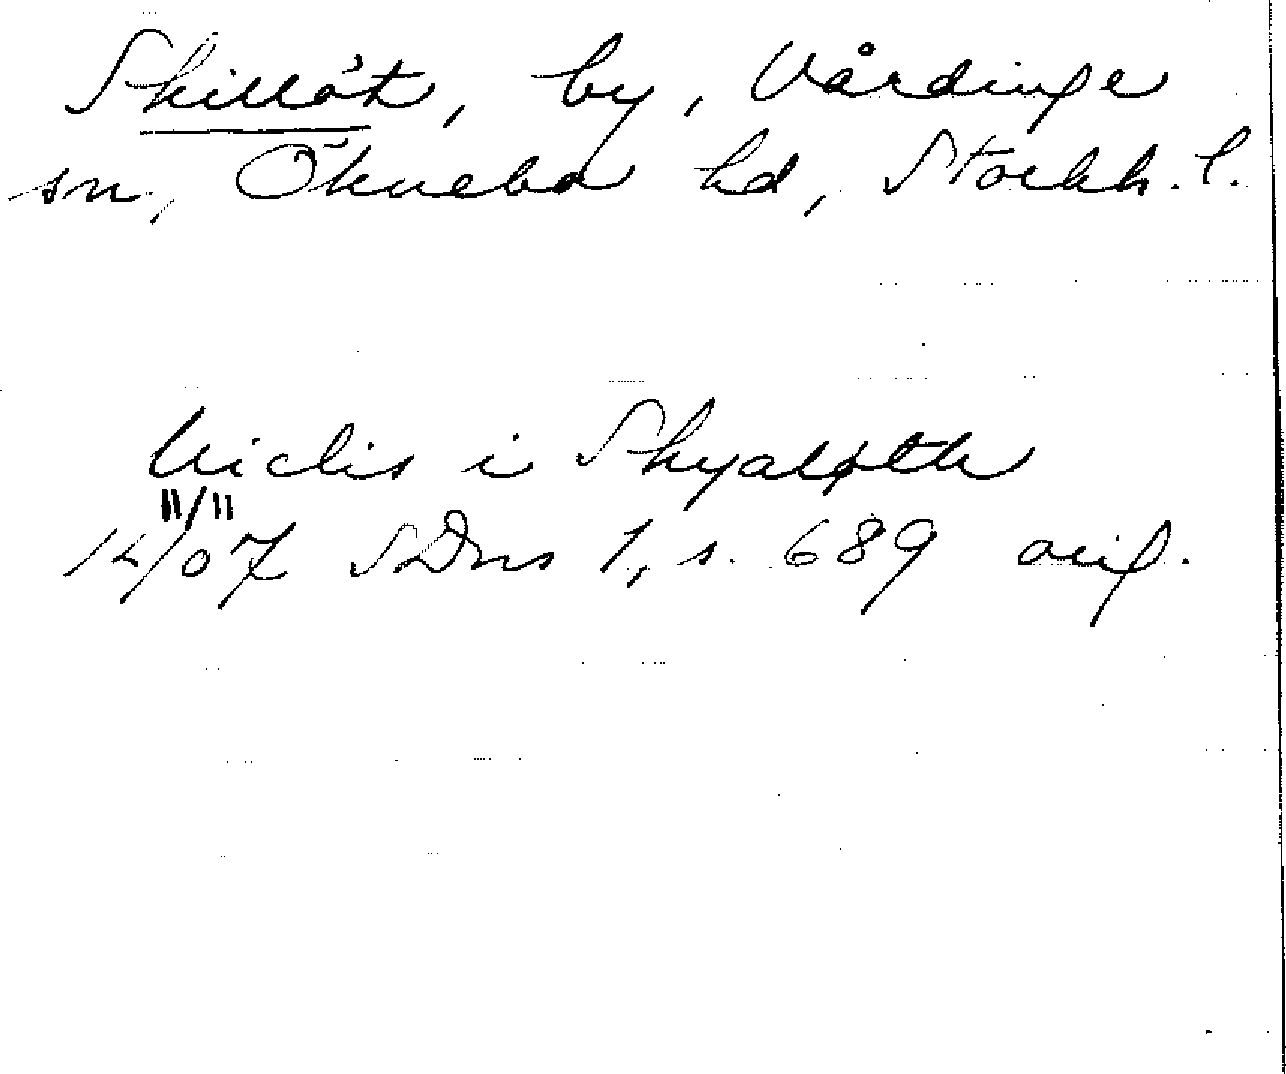 Skillöt, by, Vårdinge
sn, Öknebo hd, Stockh. l.
Niclis i Skyaløth
11/11
14/07 SDns 1, s. 689 orig.